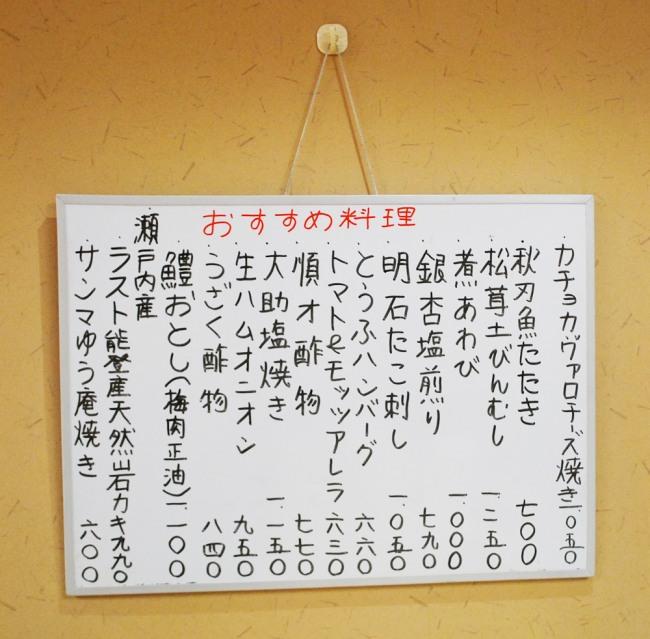 おすすめ料理
カチョカヴァロチーズ焼き 一〇五〇
秋刀魚たたき 七〇〇
松茸土びんむし 一二五〇
煮あわび 一〇〇〇
銀杏塩煎り 七九〇
明石たこ刺し 一〇五〇
とうふハンバーグ 六六〇
トマトeモッツアレラ 六三〇
順才酢物 七七〇
大助塩焼き 一一五〇
生ハムオニオン 九五〇
うざく酢物 八四〇
鱧おとし(梅肉正油) 一一〇〇
瀬戸内産
ラスト能登産天然岩カキ 九九〇
サンマゆう庵焼き 六〇〇